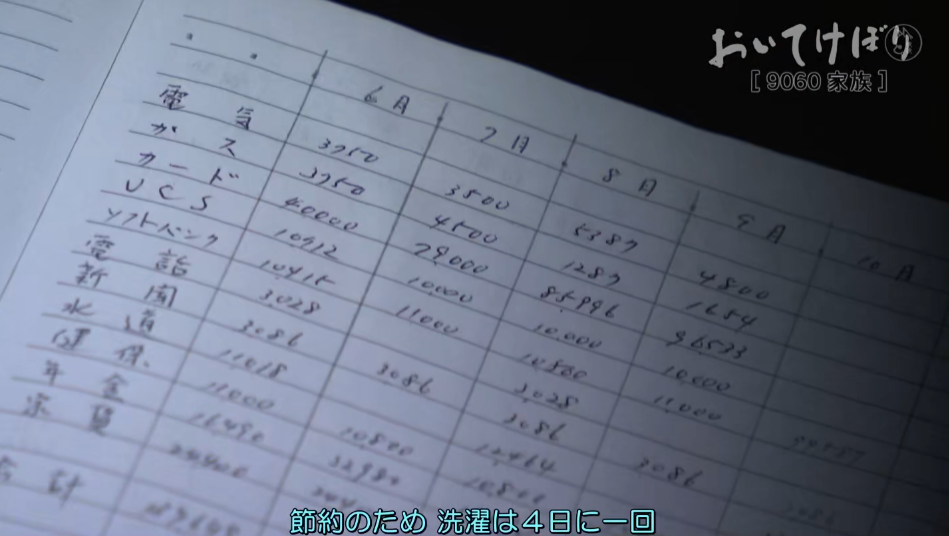 おいてけぼり
[ 9060 家族 ]
6月 7月 8月 9月 10月
電気 3750 3500 5387 4800
ガス 3750 4500 1287 1654
カード 85996 96533
UCS 10912 10,000 10,000 10,000
ソフトバンク 10415 11000 10,500 11,000
電話 3028 3,028
新聞 3086 3086 3086 3086
水道 11,018 12464
健保 11000 10,800 10,800
年金 16490 32980
家賃 24400
合計
節約のため 洗濯は４日に一回